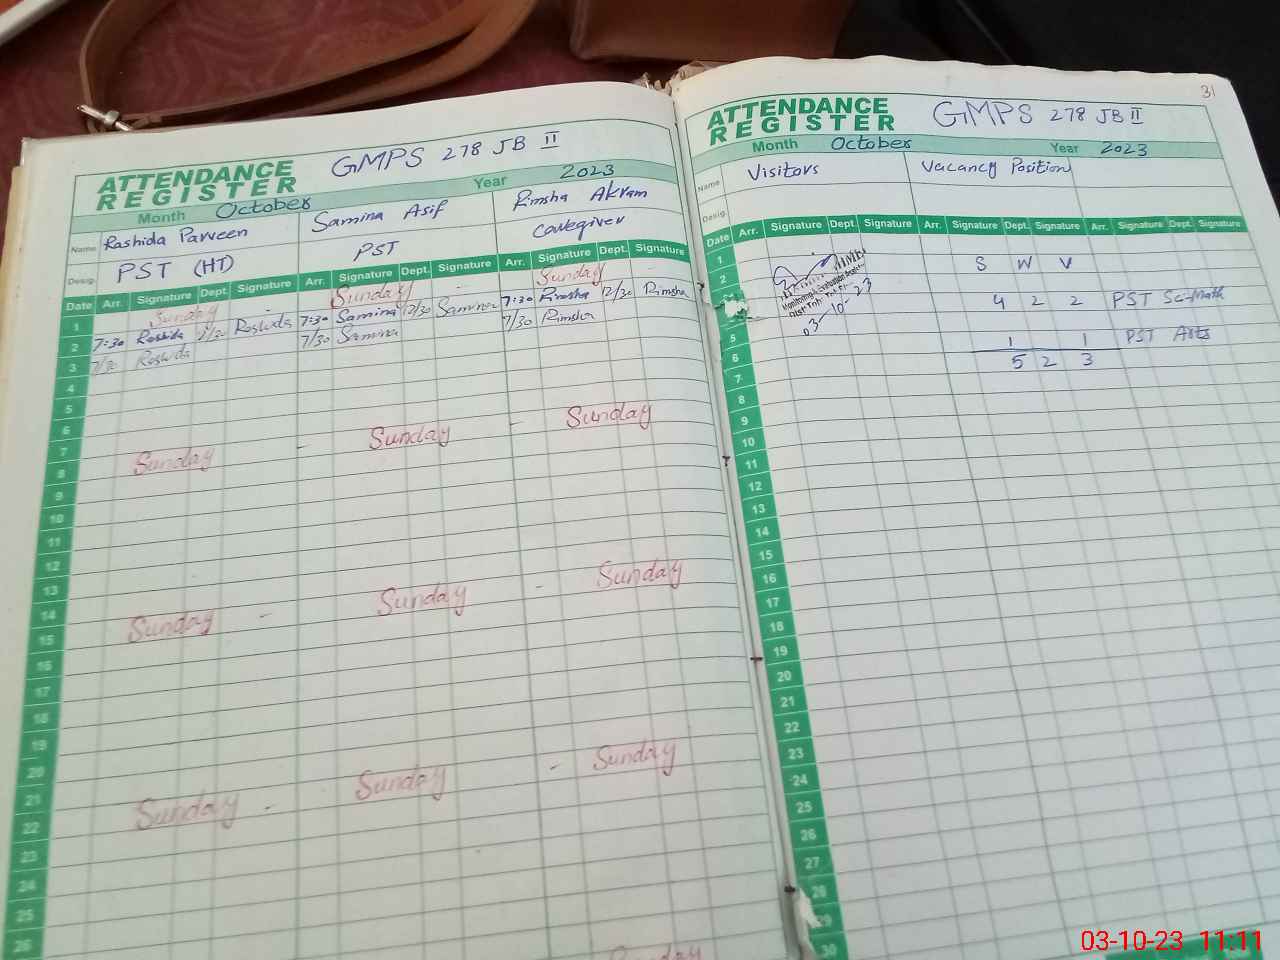 ATTENDANCE REGISTER GMPS 278 JB II
Month October Year 2023
Name Rashida Parveen Samina Asif Rimsha Akram
Desig. PST (HT) PST Caregiver
Date Arr. Signature Dept. Signature Arr. Signature Dept. Signature Arr. Signature Dept. Signature
1 Sunday - Sunday - Sunday -
2 7:30 Rashida 12/30 Rashida 7:30 Samina 12/30 Samina 7:30 Rimsha 12/30 Rimsha
3 7/30 Rashida 7/30 Samina 7/30 Rimsha
4
5
6
7
8 Sunday - Sunday - Sunday
9
10
11
12
13
14
15 Sunday - Sunday - Sunday
16
17
18
19
20
21
22 Sunday - Sunday - Sunday
23
24
25
26
Sunday
31
ATTENDANCE REGISTER GMPS 278 JB II
Month October Year 2023
Name Visitors Vacancy Position
Desig.
Date Arr. Signature Dept. Signature Arr. Signature Dept. Signature Arr. Signature Dept. Signature
1 S W V
2
03-10-23
4 2 2 PST Sc-Math
5 1 1 PST Arts
6 5 2 3
7
8
9
10
11
12
13
14
15
16
17
18
19
20
21
22
23
24
25
26
27
28
29
30
03-10-23 11:11